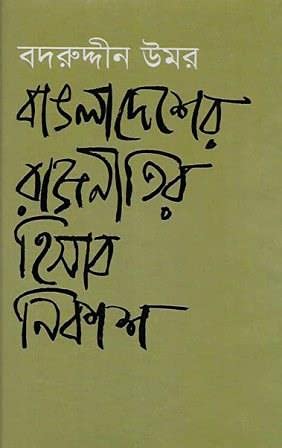 বদরুদ্দীন উমর
বাংলাদেশের
রাজনীতির
হিসাব
নিকাশ